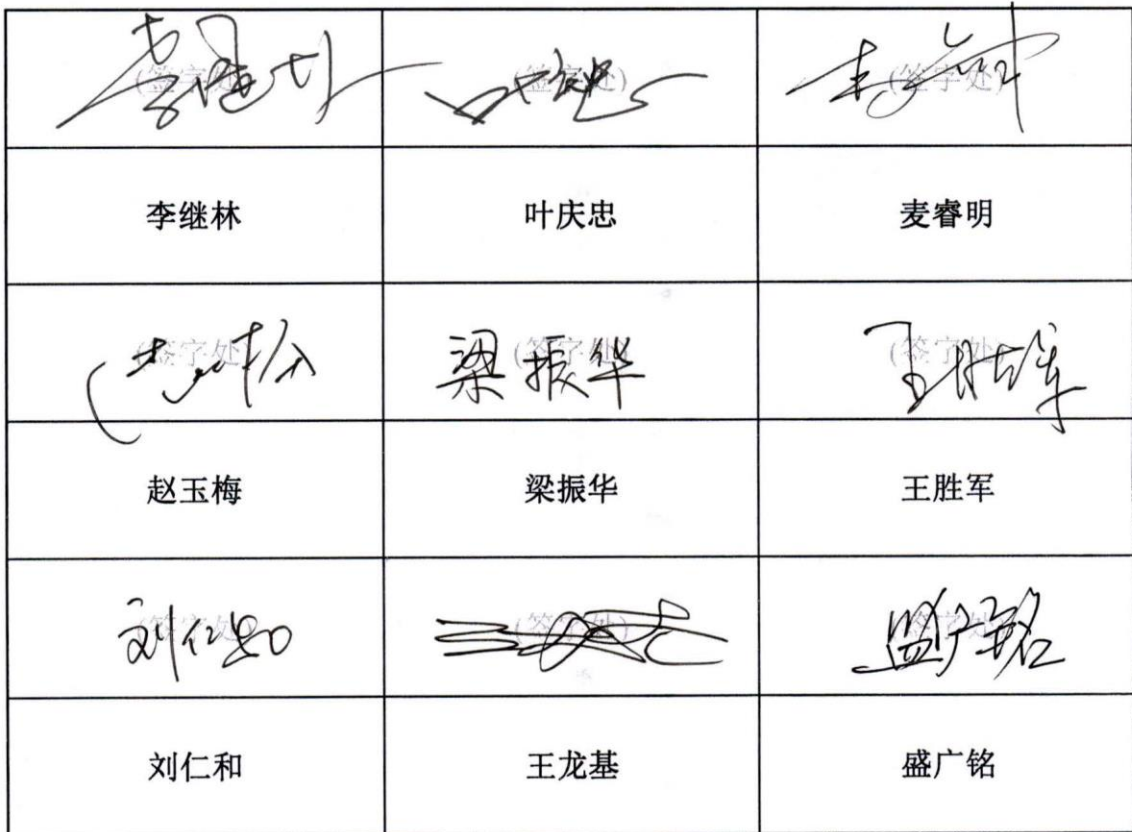 (签字处) (签字处) (签字处)
李继林 叶庆忠 麦睿明
(签字处) 梁振华 (签字处) (签字处)
赵玉梅 梁振华 王胜军
(签字处) 刘仁和 (签字处) 盛广铭
刘仁和 王龙基 盛广铭